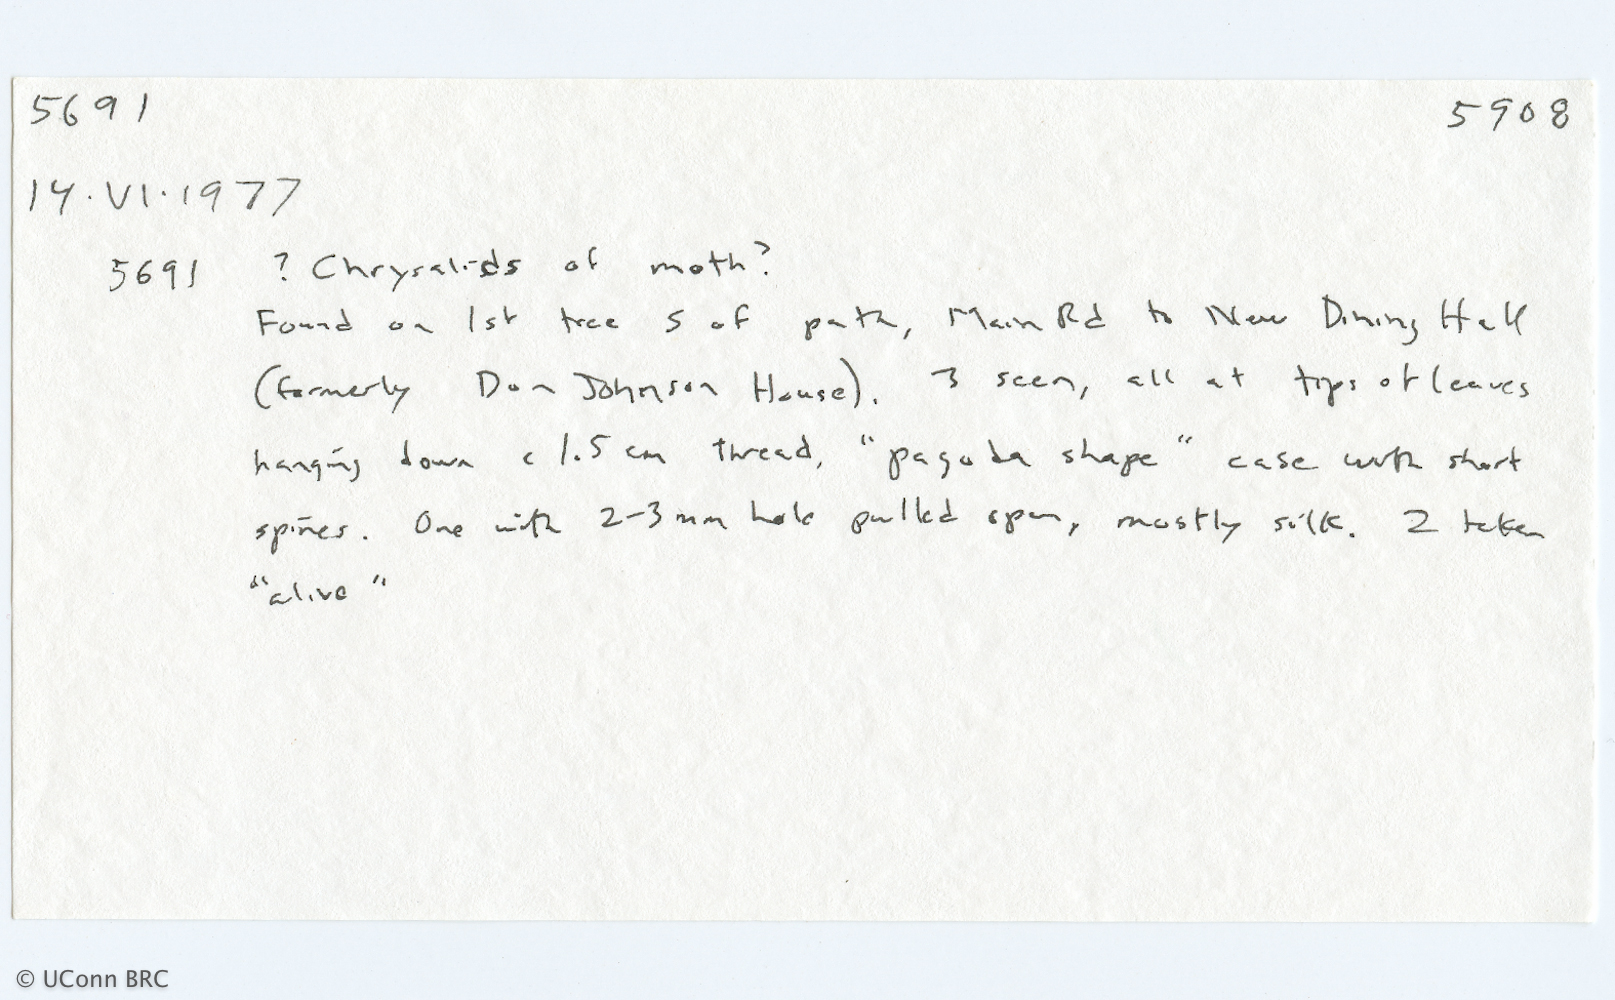 5691 5908
14.VI.1977
5691 ? Chrysalids of moth?
Found on 1st tree S of path, Main Rd to New Dining Hall
(formerly Don Johnson House). 3 seen, all at tips of leaves
hanging down c 1.5 cm thread, "pagoda shape" case with short
spines. One with 2-3 mm hole pulled open, mostly silk. 2 taken
"alive"
© UConn BRC